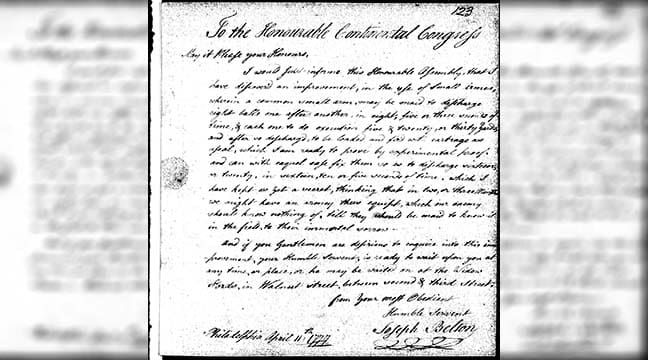 123
To the Honourable Continental Congress
May it Please your Honours,
I would just informe this Honourable Asembly, that I
have discovred an improvement, in the use of Small Armes,
wherein a common small arm, may be maid to discharge
eight balls one after another, in eight, five or three seconds of
time, & each one to do execution five & twenty, or thirty yards,
and after so discharg'd, to be loaded and fire'd with cartrage as
usal, which I am ready to prove by experimental proof.
and can with eaquel ease fix them so as to discharge sixteen,
or twenty, in sixteen, ten or five seconds of time, which I
have kept as yet a secret, thinking that in two, or three Months
we might have an armey thus equipt, which our enemy
should know nothing of, till they should be maid to know it
in the field, to their immortal sorrow—
And if you Gentlemen are desirous to enquire into this im
provement, your Humble Servent, is ready to wait upon you at
any time, or place, or he may be waited on at the Widow
in Walnut Street, between second & third Street,
from Your most Obedient
Humble Servent
Joseph Belton
Philadelphia April 11th 1777